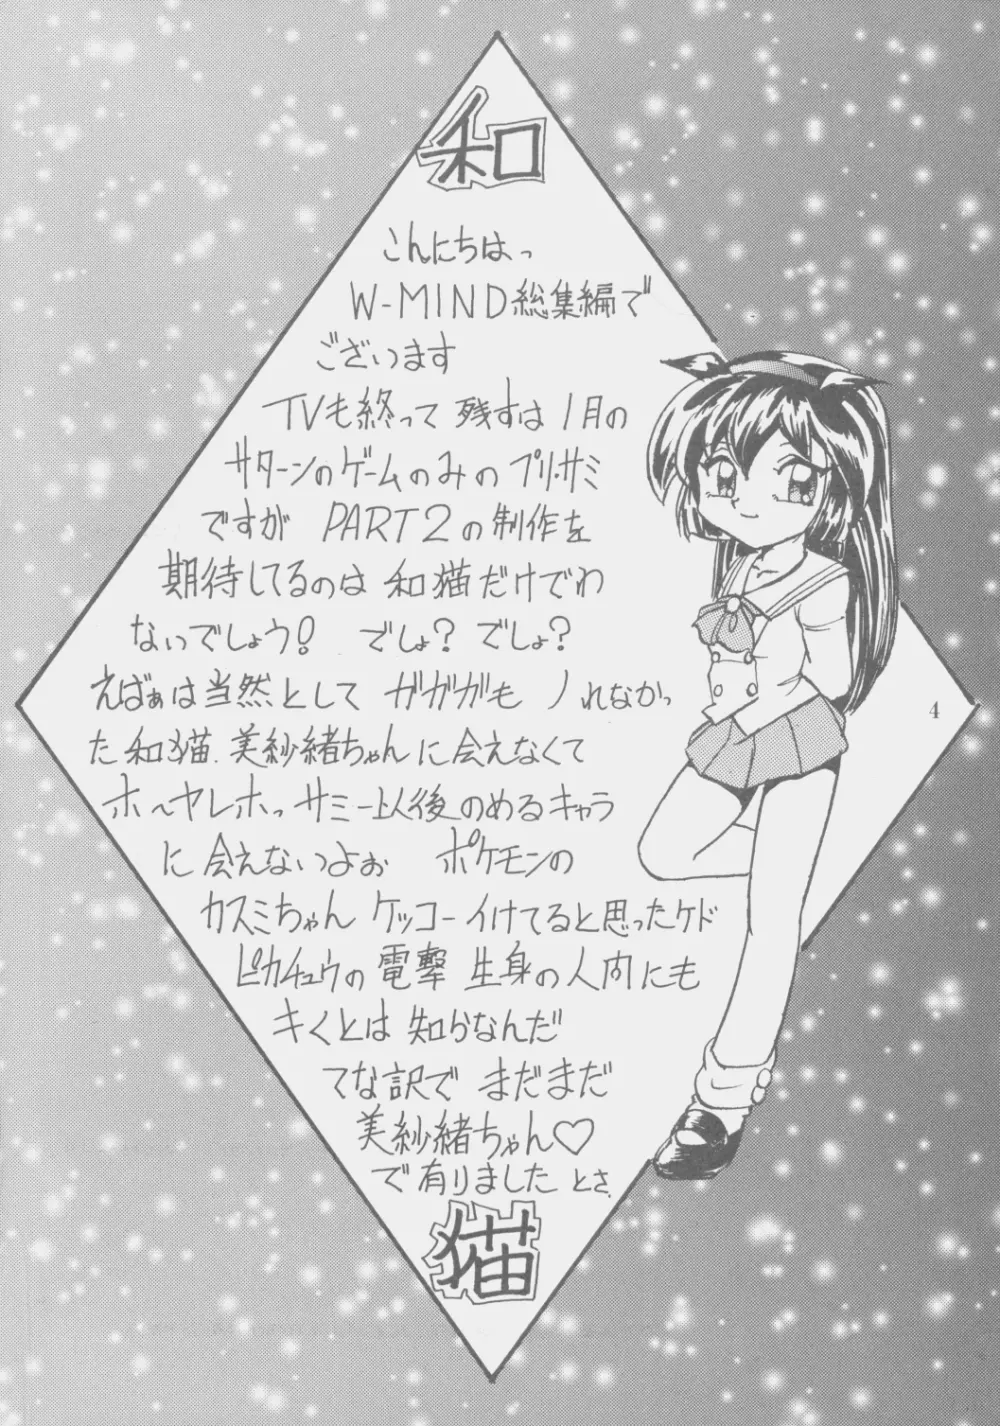 和
こんにちはっ
W-MIND総集編で
ございます
TVも終って 残すは 1月の
サターンのゲームのみの プリ・サミ
ですが PART2の制作を
期待してるのは 和猫だけでわ
ないでしょう! でしょ? でしょ?
えばぁは当然として ガガガも ノれなかっ
た和猫、美紗緒ちゃんに会えなくて
ホ〜ヤレホっ サミー以後のめるキャラ
に 会えないつよぉ ポケモンの
カスミちゃん ケッコーイけてると思ったケド
ピカチュウの 電撃 生身の人間にも
キくとは 知らなんだ
てな訳で まだまだ
美紗緒ちゃん♡
で有りました とさ
猫
4